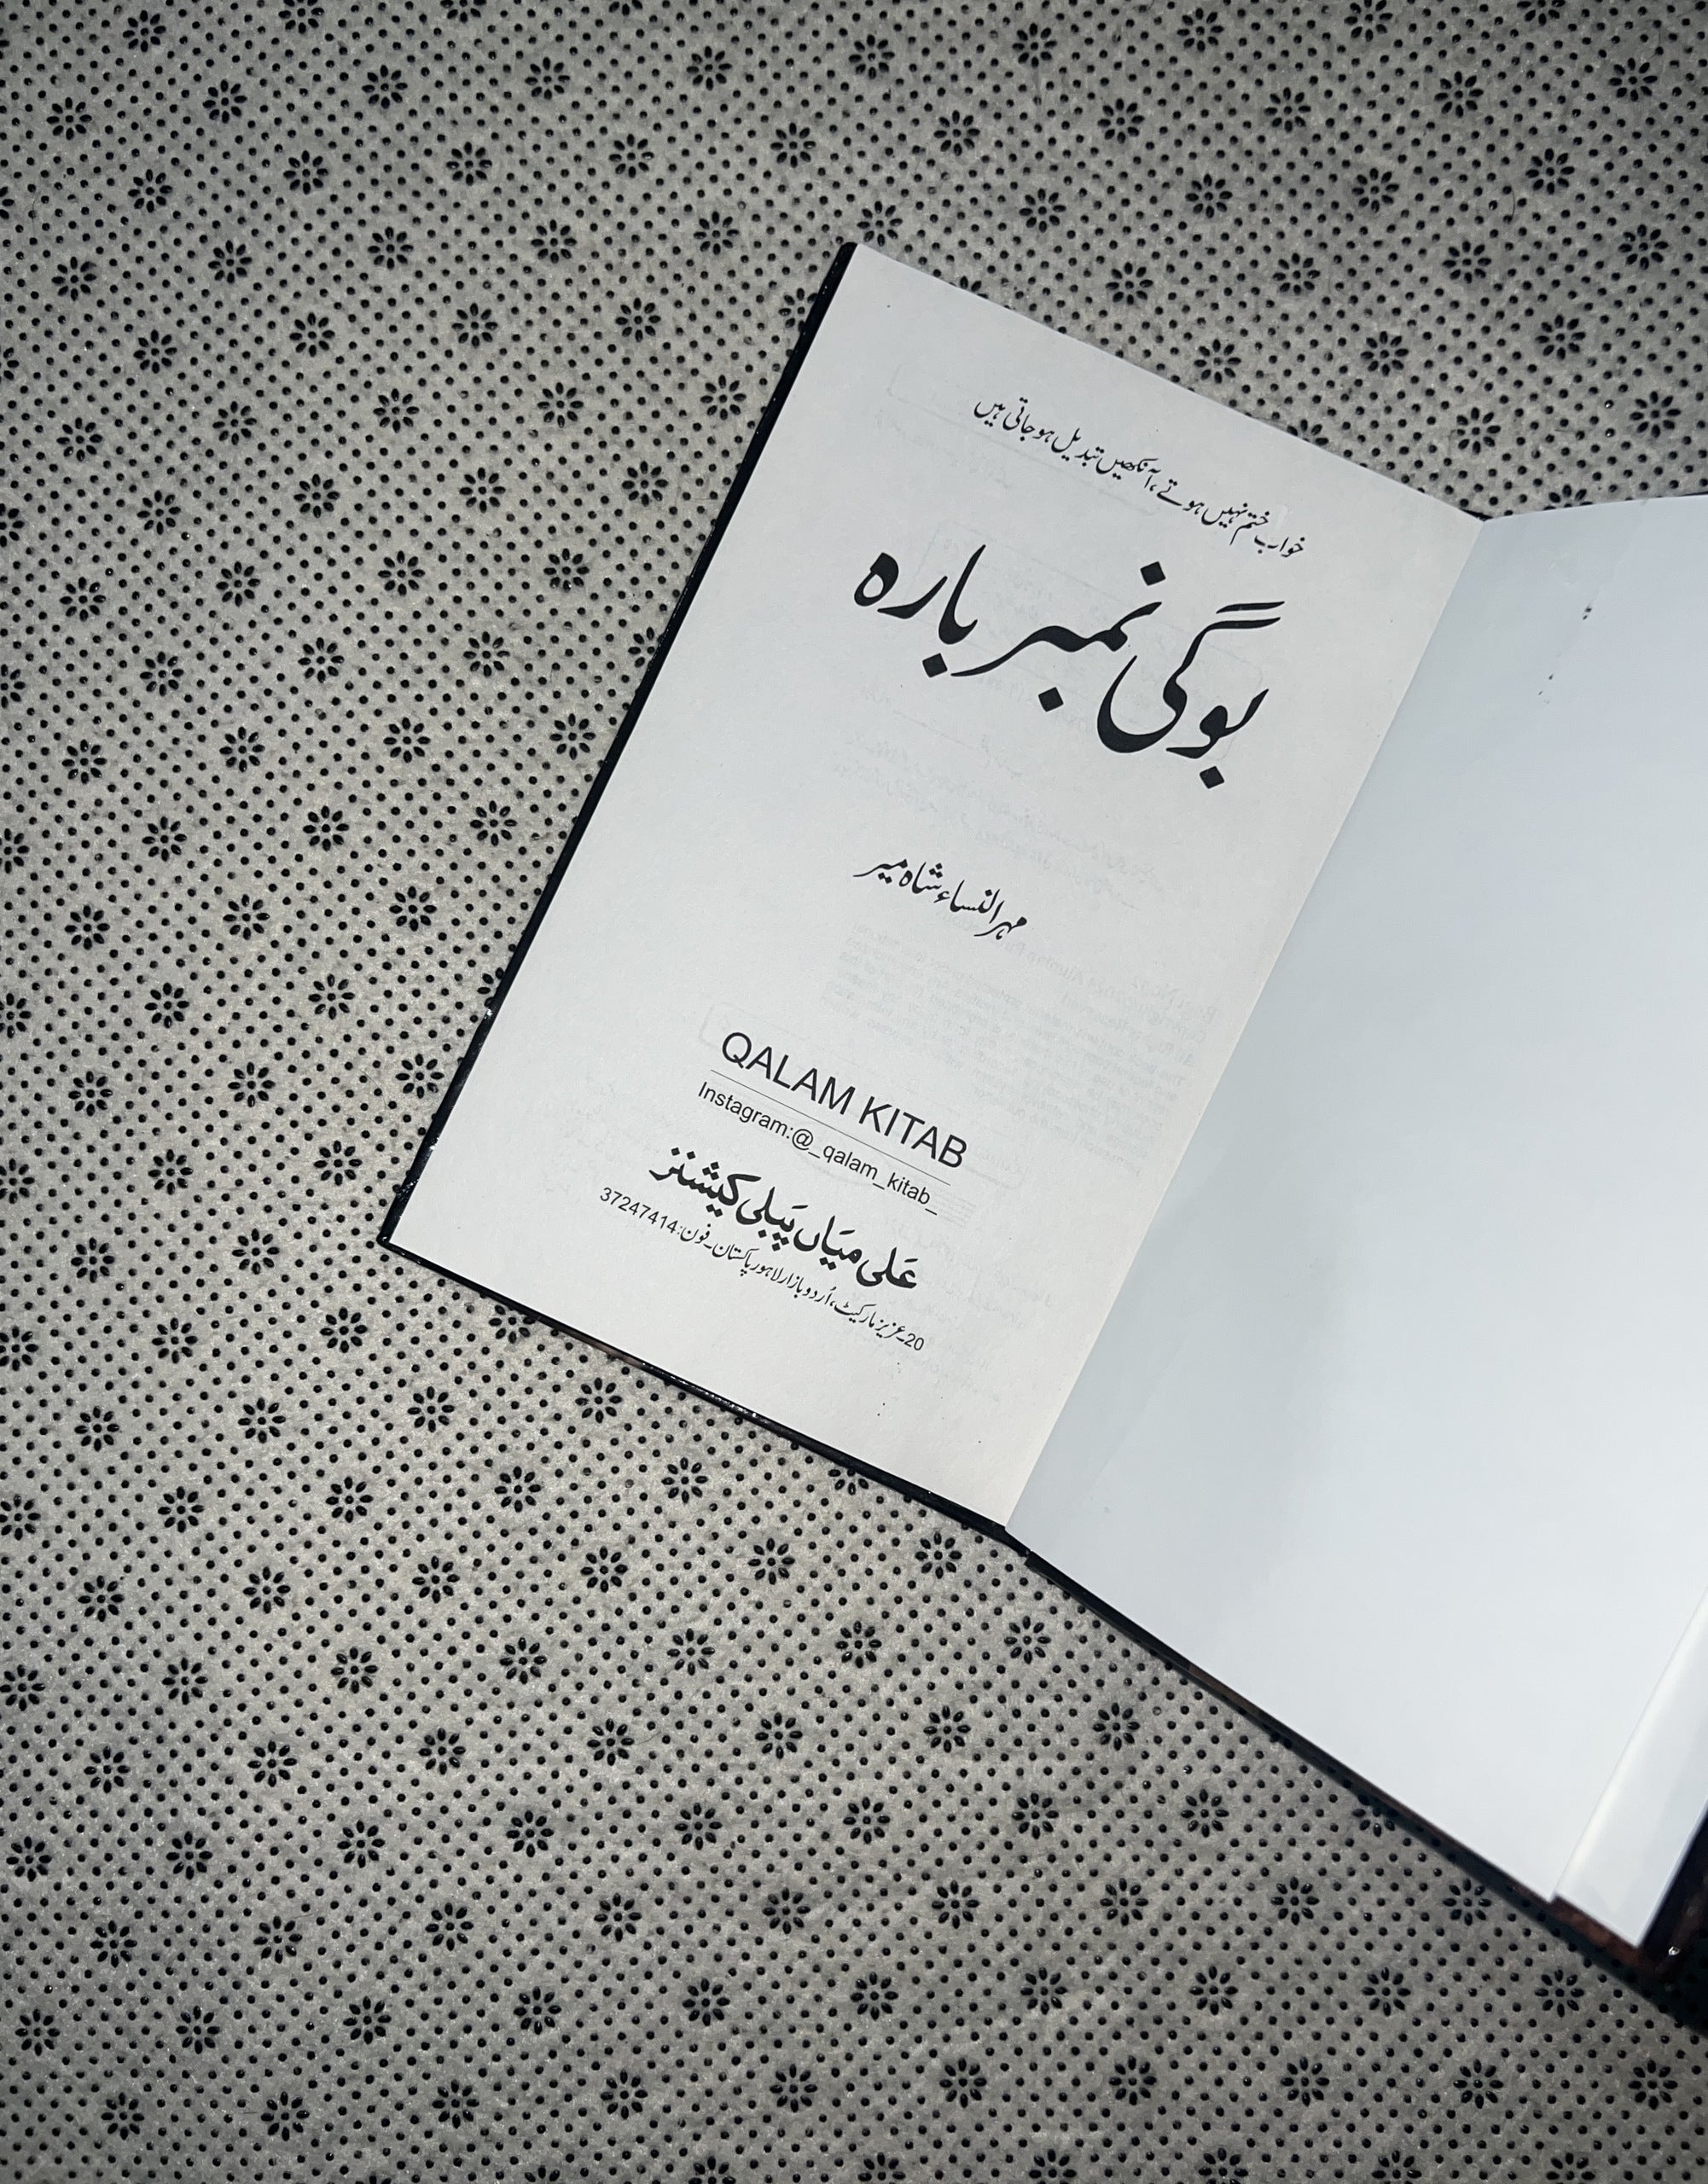 خواب ختم نہیں ہوتے، آنکھیں تبدیل ہو جاتی ہیں
بوگی نمبر بارہ
مہرالنساء شاہ میر
QALAM KITAB
Instagram:@_qalam_kitab_
عَلی مِیَاں پَبلی کیشنز
20۔عزیز مارکیٹ، اُردو بازار لاہور پاکستان۔ فون: 37247414